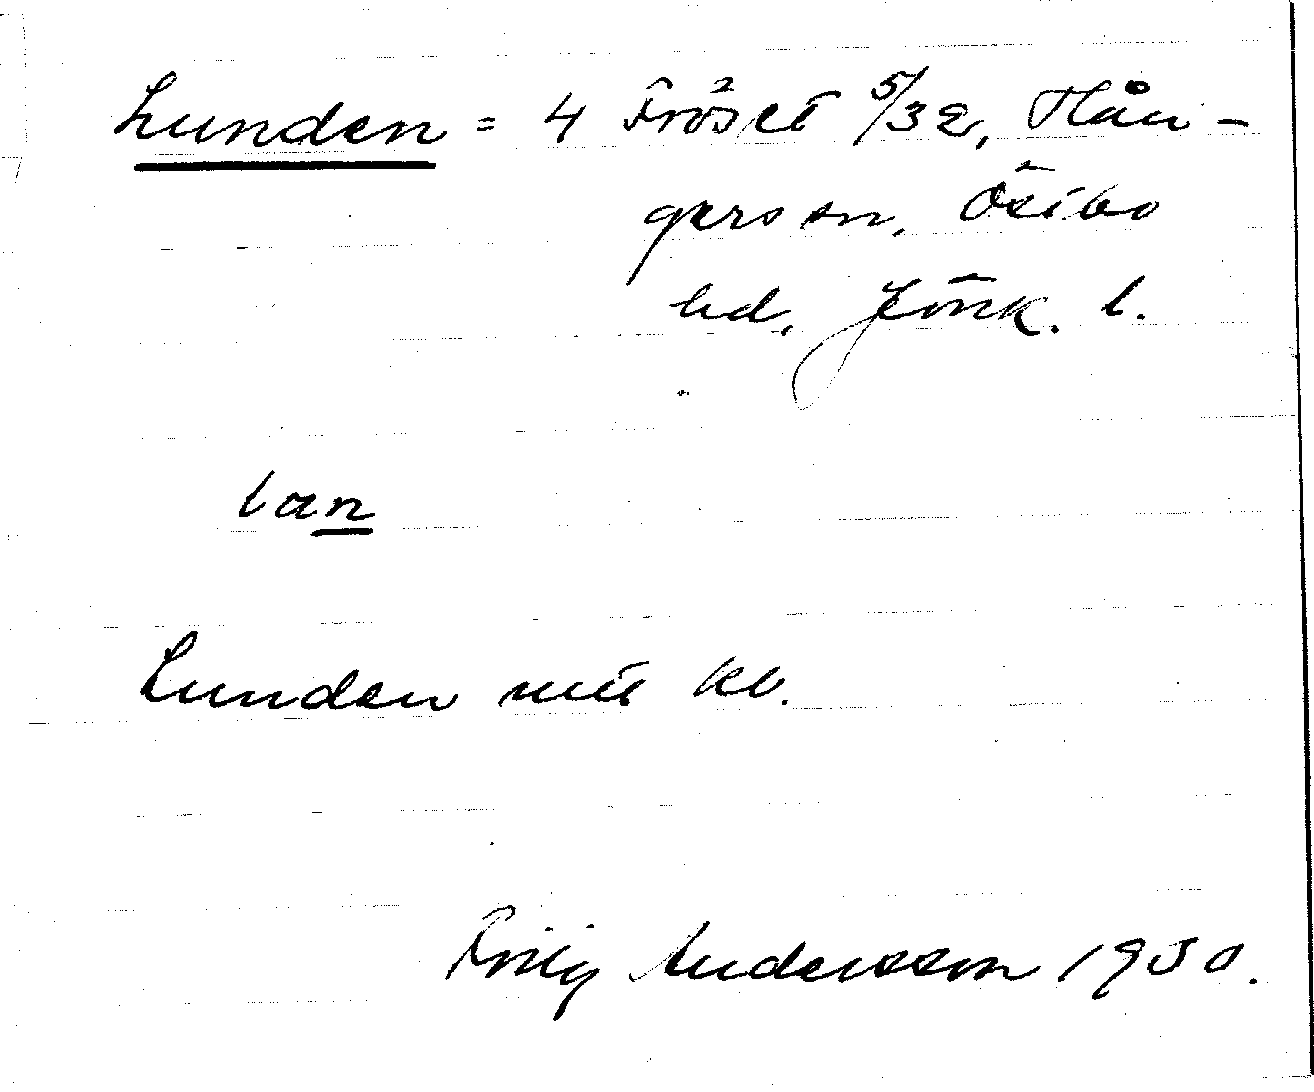 Lunden = 4 Fröset 5/32, Hån-
gersson, Östbo
hd, Jönk. l.
lan
Lunden mtt kb.
Andersson 1930.